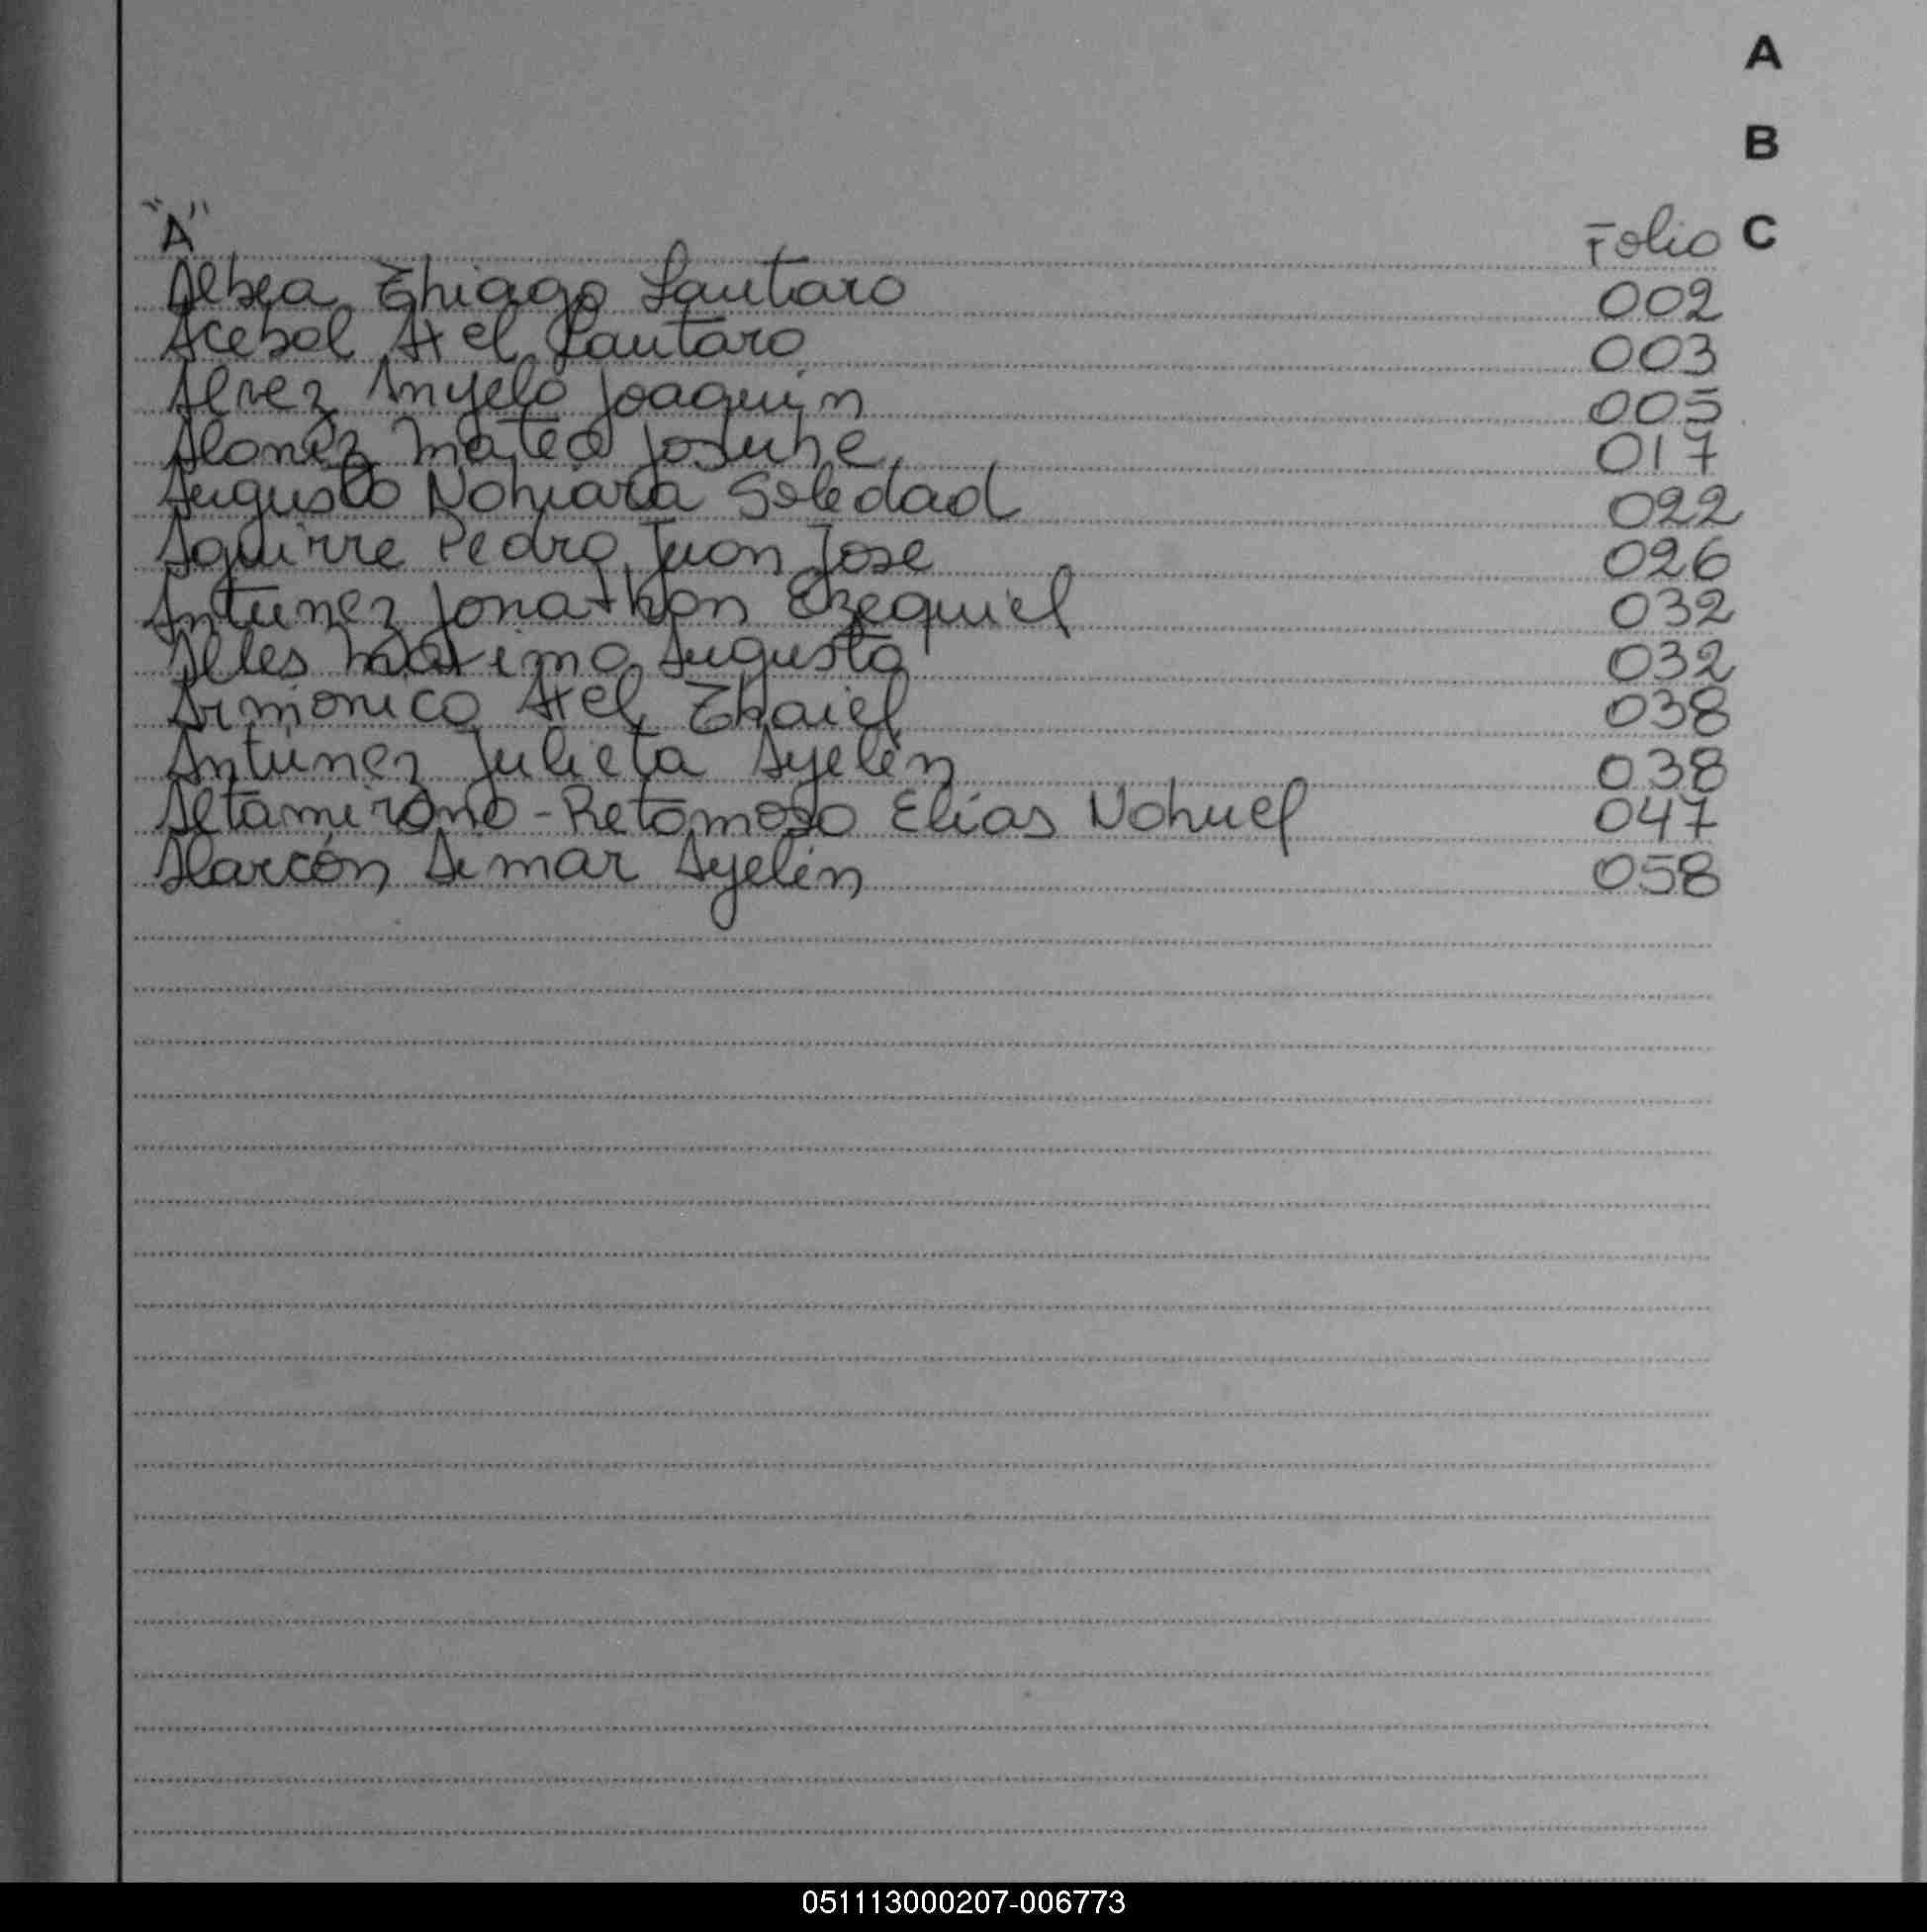 A
B
"A" Folio C
Albea Thiago Lautaro 002
Acebal Axel Lautaro 003
Alvez Angelo Joaquin 005
Mateo Josuhe 017
Augusto Nahiara Soledad 022
Aguirre Pedro Juan Jose 026
Antunez Jonathan Ezequiel 032
Alles Maximo Augusto 032
Armonico Axel Thaiel 038
Antúnez Julieta Ayelén 038
Altamirano-Retamozo Elías Nahuel 047
Alarcón Ayelén 058
051113000207-006773